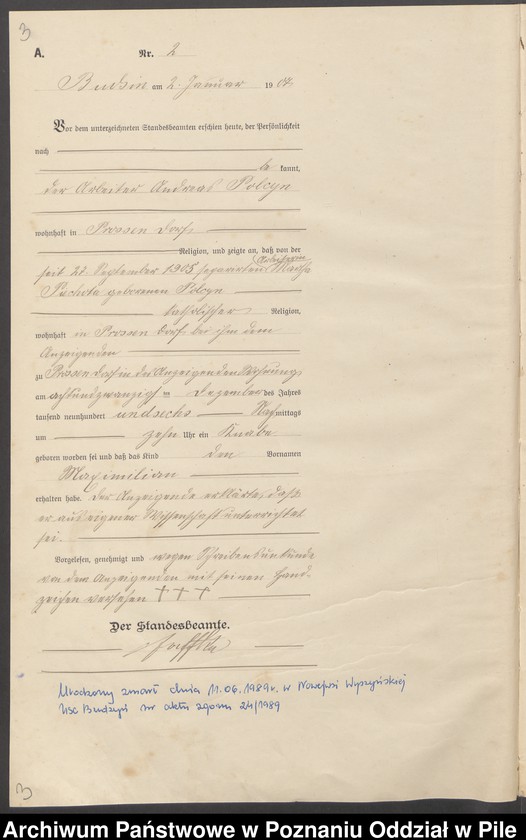 3
A. Nr. 2
Budsin am 2. Januar 1907.
Vor dem unterzeichneten Standesbeamten erschien heute, der Persönlichkeit
nach
be kannt,
der Arbeiter Andreas Polcyn
wohnhaft in Prossen Dorf
Religion, und zeigte an, daß von der
seit 22. September 1905 separirten Arbeiterin Martha
Puchota geborenen Polcyn
katholischer Religion,
wohnhaft in Prossen Dorf bei ihm dem
Anzeigenden
zu Prossen Dorf in des Anzeigenden Wohnung
am achtundzwanzigsten Dezember des Jahres
tausend neunhundert und sechs Nachmittags
um zehn Uhr ein Knabe
geboren worden sei und daß das Kind den Vornamen
Maximilian
erhalten habe. Der Anzeigende erklärte, daß
er aus eigener Wissenschaft unterrichtet
sei.
Vorgelesen, genehmigt und wegen Schreibensunkunde
von dem Anzeigenden mit seinen Hand-
zeichen versehen † † †
Der Standesbeamte.
Urodzony zmarł dnia 11.06.1989r. w Nowejwsi Wyszyńskiej
USC Budzyń nr aktu zgonu 24/1989
3
Archiwum Państwowe w Poznaniu Oddział w Pile